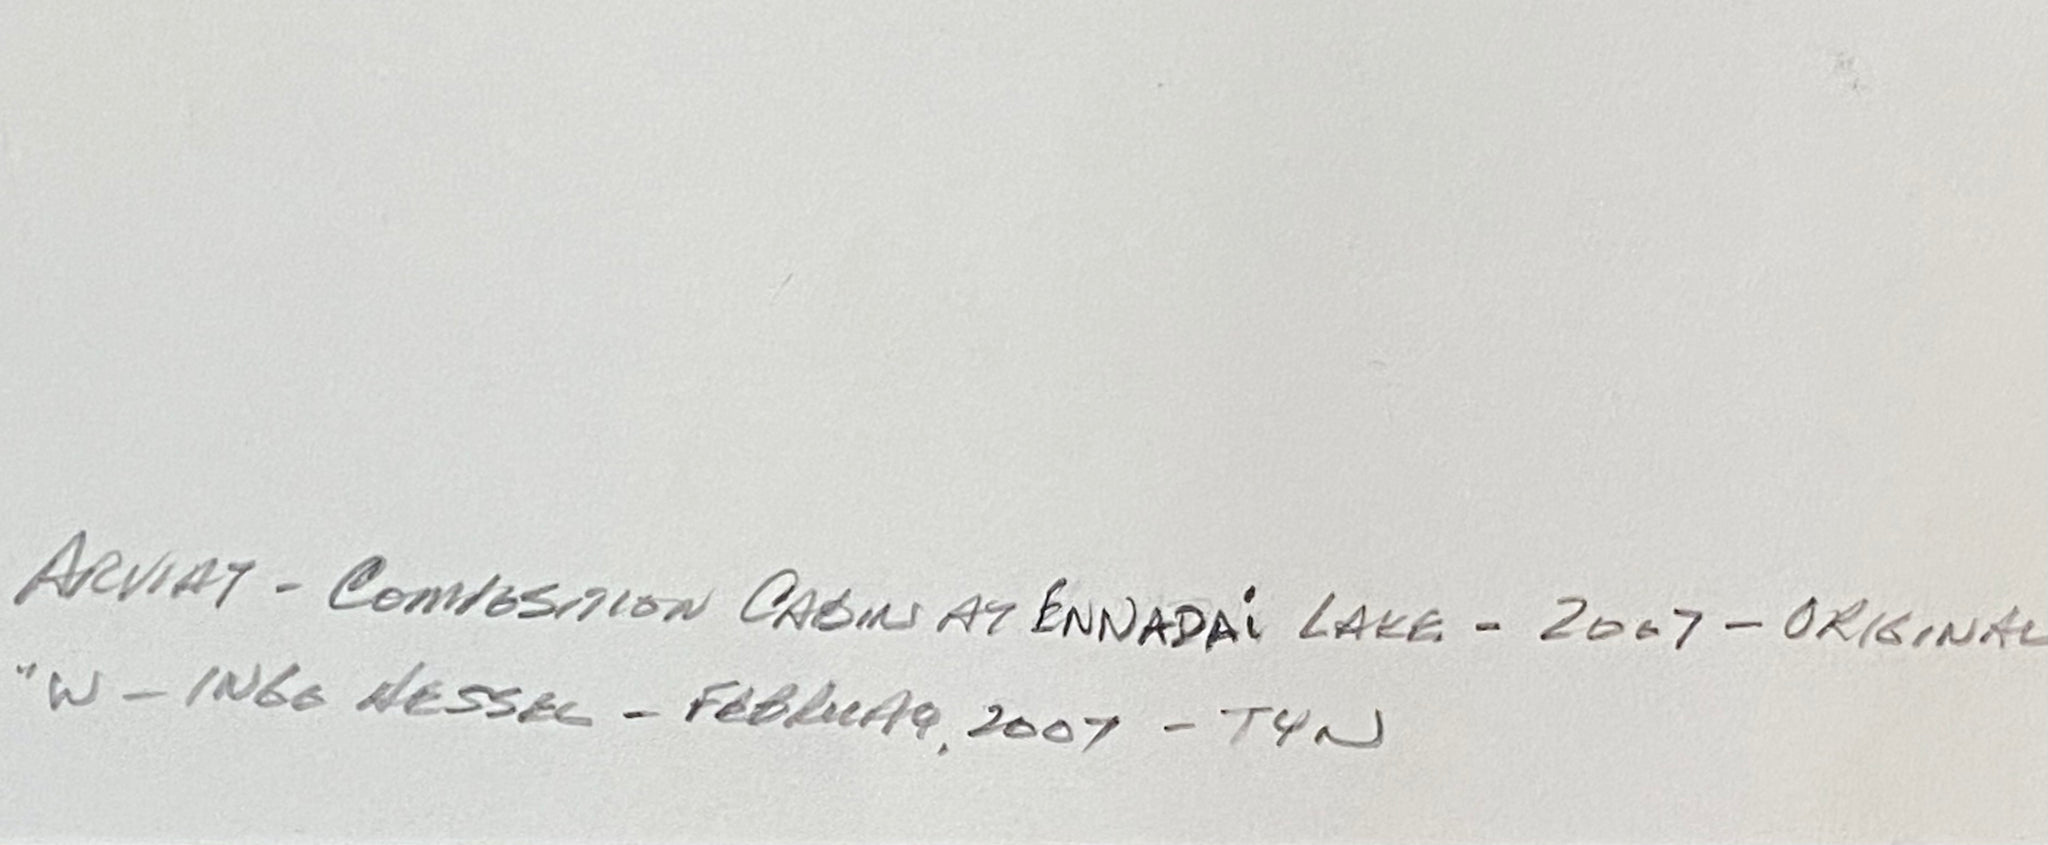 ARVIAT - COMPOSITION CABIN AT ENNADAi LAKE - 2007 - ORIGINAL
"W - INGO HESSEL - FEBRUARY, 2007 - T4N